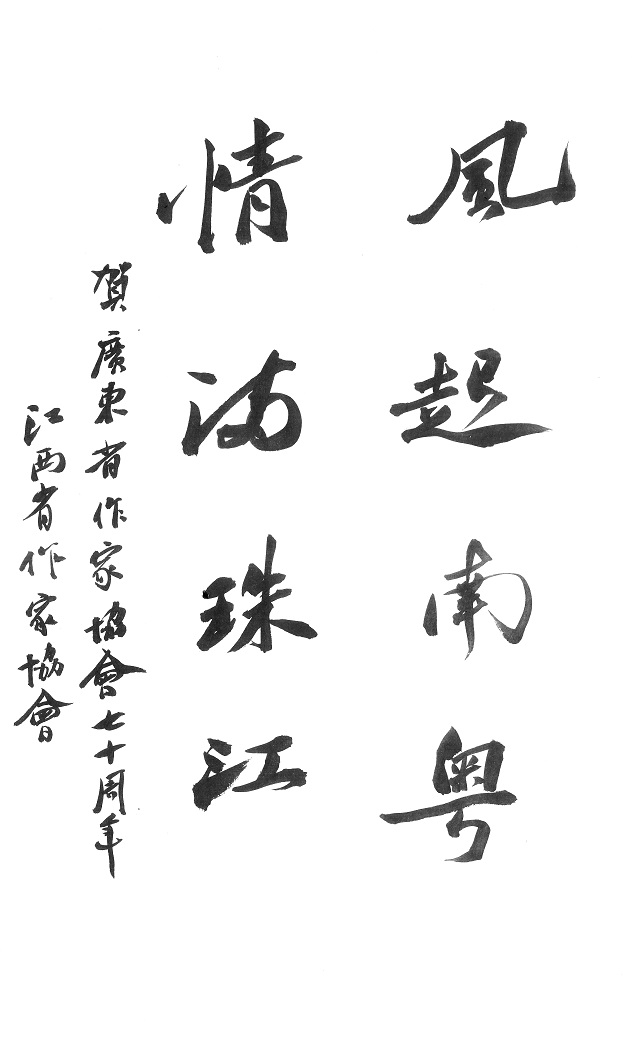 風起南粤
情满珠江
賀廣東省作家協會七十周年
江西省作家協會